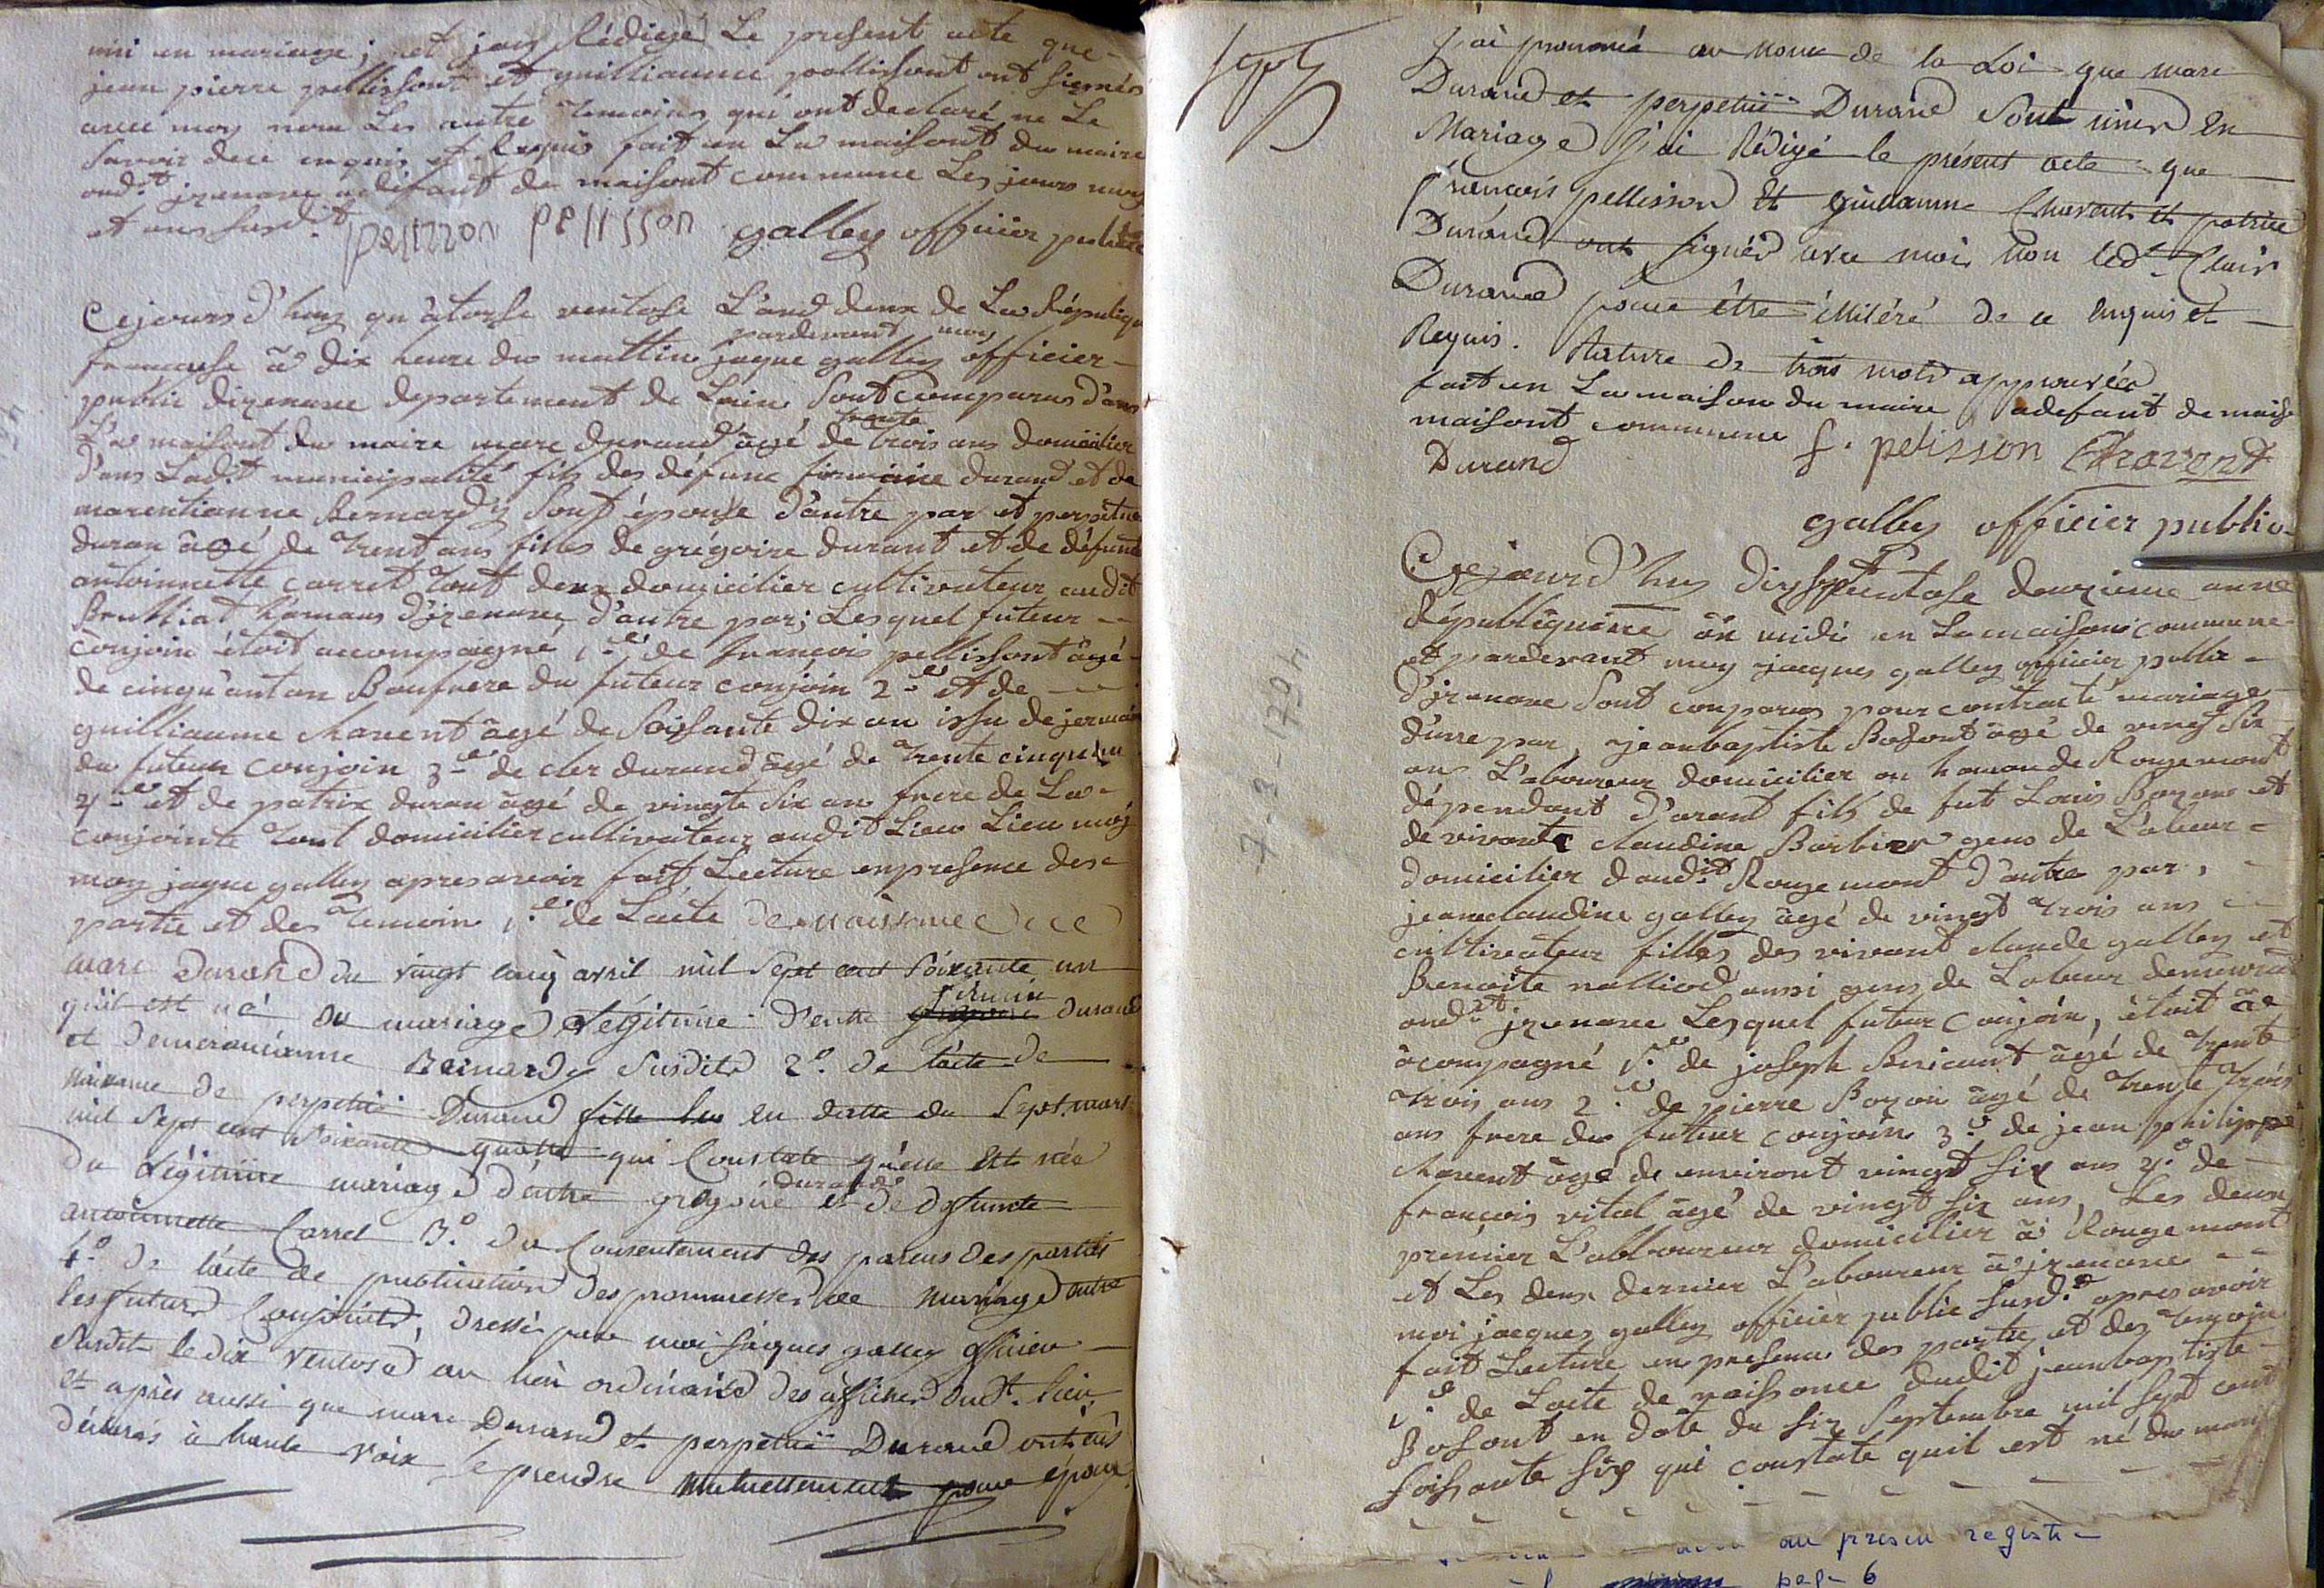 uni en mariage; et jay Rédiegé Le present acte que -
jean pierre pellissont et guilliaume pellissont ont signiés
avec moy non Les autre temoins qui ont declaré ne Le
savoir dece enquis et Requis fait en La maisont du maire
oud.t jzenave adéfaut de maisont commune Les jours moy
et ans susd.t pelizzon pelisson galley officier public
Cejourd'huy qu'âtorse ventose L'and deux de La Républiqu
francaise à dix heure du mattin pardevand moy jaque galley officier -
public dizenave departement de Lain Sont comparus d'ans
La maisont du maire marc durand âgé de trente trois ans domicilier
d'ans Lad.t municipalité fils des défunc firmin durand et de
marentianne Bernardy Sont épouse d'autre par et perpetue
duran âgé de trent ans filles de grégoire durant et de défunte
antoinnette carret tout deux domicilier cultivateur audit
Brulliat hamaus d'izenave d'autre par; Lesquel futeur --
conjoin étoit accompagné 1.e de francois pellissont âgé -
de cinqu'antan Baufrere du futeur conjoin 2.e et de --
guilliaume Chavent âgé de Soissante dix an issu de jermain
du futeur conjoin 3.e de cler durand âgé de trente cinque an
4.e et de patrix duran âgé de vingte six an frere de La -
conjointe tout domicilier cultivateur audit Lieu Lieu moy
moy jaque galley apres avoir fait Lecture enpresence des -
partie et des temoin 1.e de Lacte de naissance de
marc Durand du vingt cinq avril mil sept cent soixante un
qu'il est né du mariage Légitime d'entre firmin durand
et demarantianne Bernardy susdits 2.o de l'acte de
naissance de perpetüe Durand fille en datte du sept mars
mil sept cent soixante quatre qui Constate qu'elle est née
du Légitime mariage d'entre grégoire durand et de defunte
antoinnette Carret 3.o du Consentement des parens des parties
4.o de l'acte de publication des promesses de mariage entre
les futurs Conjoints, dressé par moi jaques galley officier -
susdit le dix ventose au lieu ordinaire des affiches dud.t lieu,
et après aussi que marc Durand et perpetüe Durand ont eûs
déclarés à haute voix se prendre mutuellement pour époux
J'ai prononcé au nom de la Loi que marc
Durand et perpetüe Durand sont unis en
Mariage j'ai Rédigé le présent acte que
francois pellisson et guillaume Chavent et patrice
Durand ont signés avec moi non led.t Clair
Durand pour être illitéré de ce enquis et
Requis. Rature de trois mots approuvée
fait en La maison du maire adefaut de maiso
maisont commune f. pelisson Chavent
Durand
galley officier public
Cejourd'huy dixsept ventose deuxieme anné
Républiquaine ôn midi en La maisont commune
et pardevant moy jacques galley officier public -
d'jzenave Sont comparus pour contracté mariage
d'une par, jeanbaptiste Bosont âgé de vingt six
ans L'aboureur domicilier au hamau de Rougemont
dépendant d'arant fils de fut Louis Bozon et
de vivante Claudine Barbier gens de L'abeur -
domicilier daudit Rougemont d'autre par,
jeanclaudine galley âgé de vingt trois ans -
cultivateur filles des vivant claude galley et
Benoite nalliod aussi gens de Labeur demeurant
oud.t jzenave Lesquel futeur Conjoin, étoit ac
âcompagné 1.e de joseph Bericant âgé de trent
trois ans 2.e de pierre Bozon âgé de trente trois
ans frere du futeur conjoin 3.e de jean philippe
Chavent âgé de environt vingt six ans 4.o de -
francois vital âgé de vingt six ans, Les deux
premier L'aboureur domicilier à Rougemont
et Les deux dernier L'aboureur à jzenave --
moi jacques galley officier public susd.t apres avoir
fait Lecture en presence des partie et des temoin
1.e de Lacte de naissance dudit jeanbaptiste -
Bosont en date du six Septembre mil sept cent
soissante six qui constate quil est né du maria
7-3-1794
au présen registre
page 6